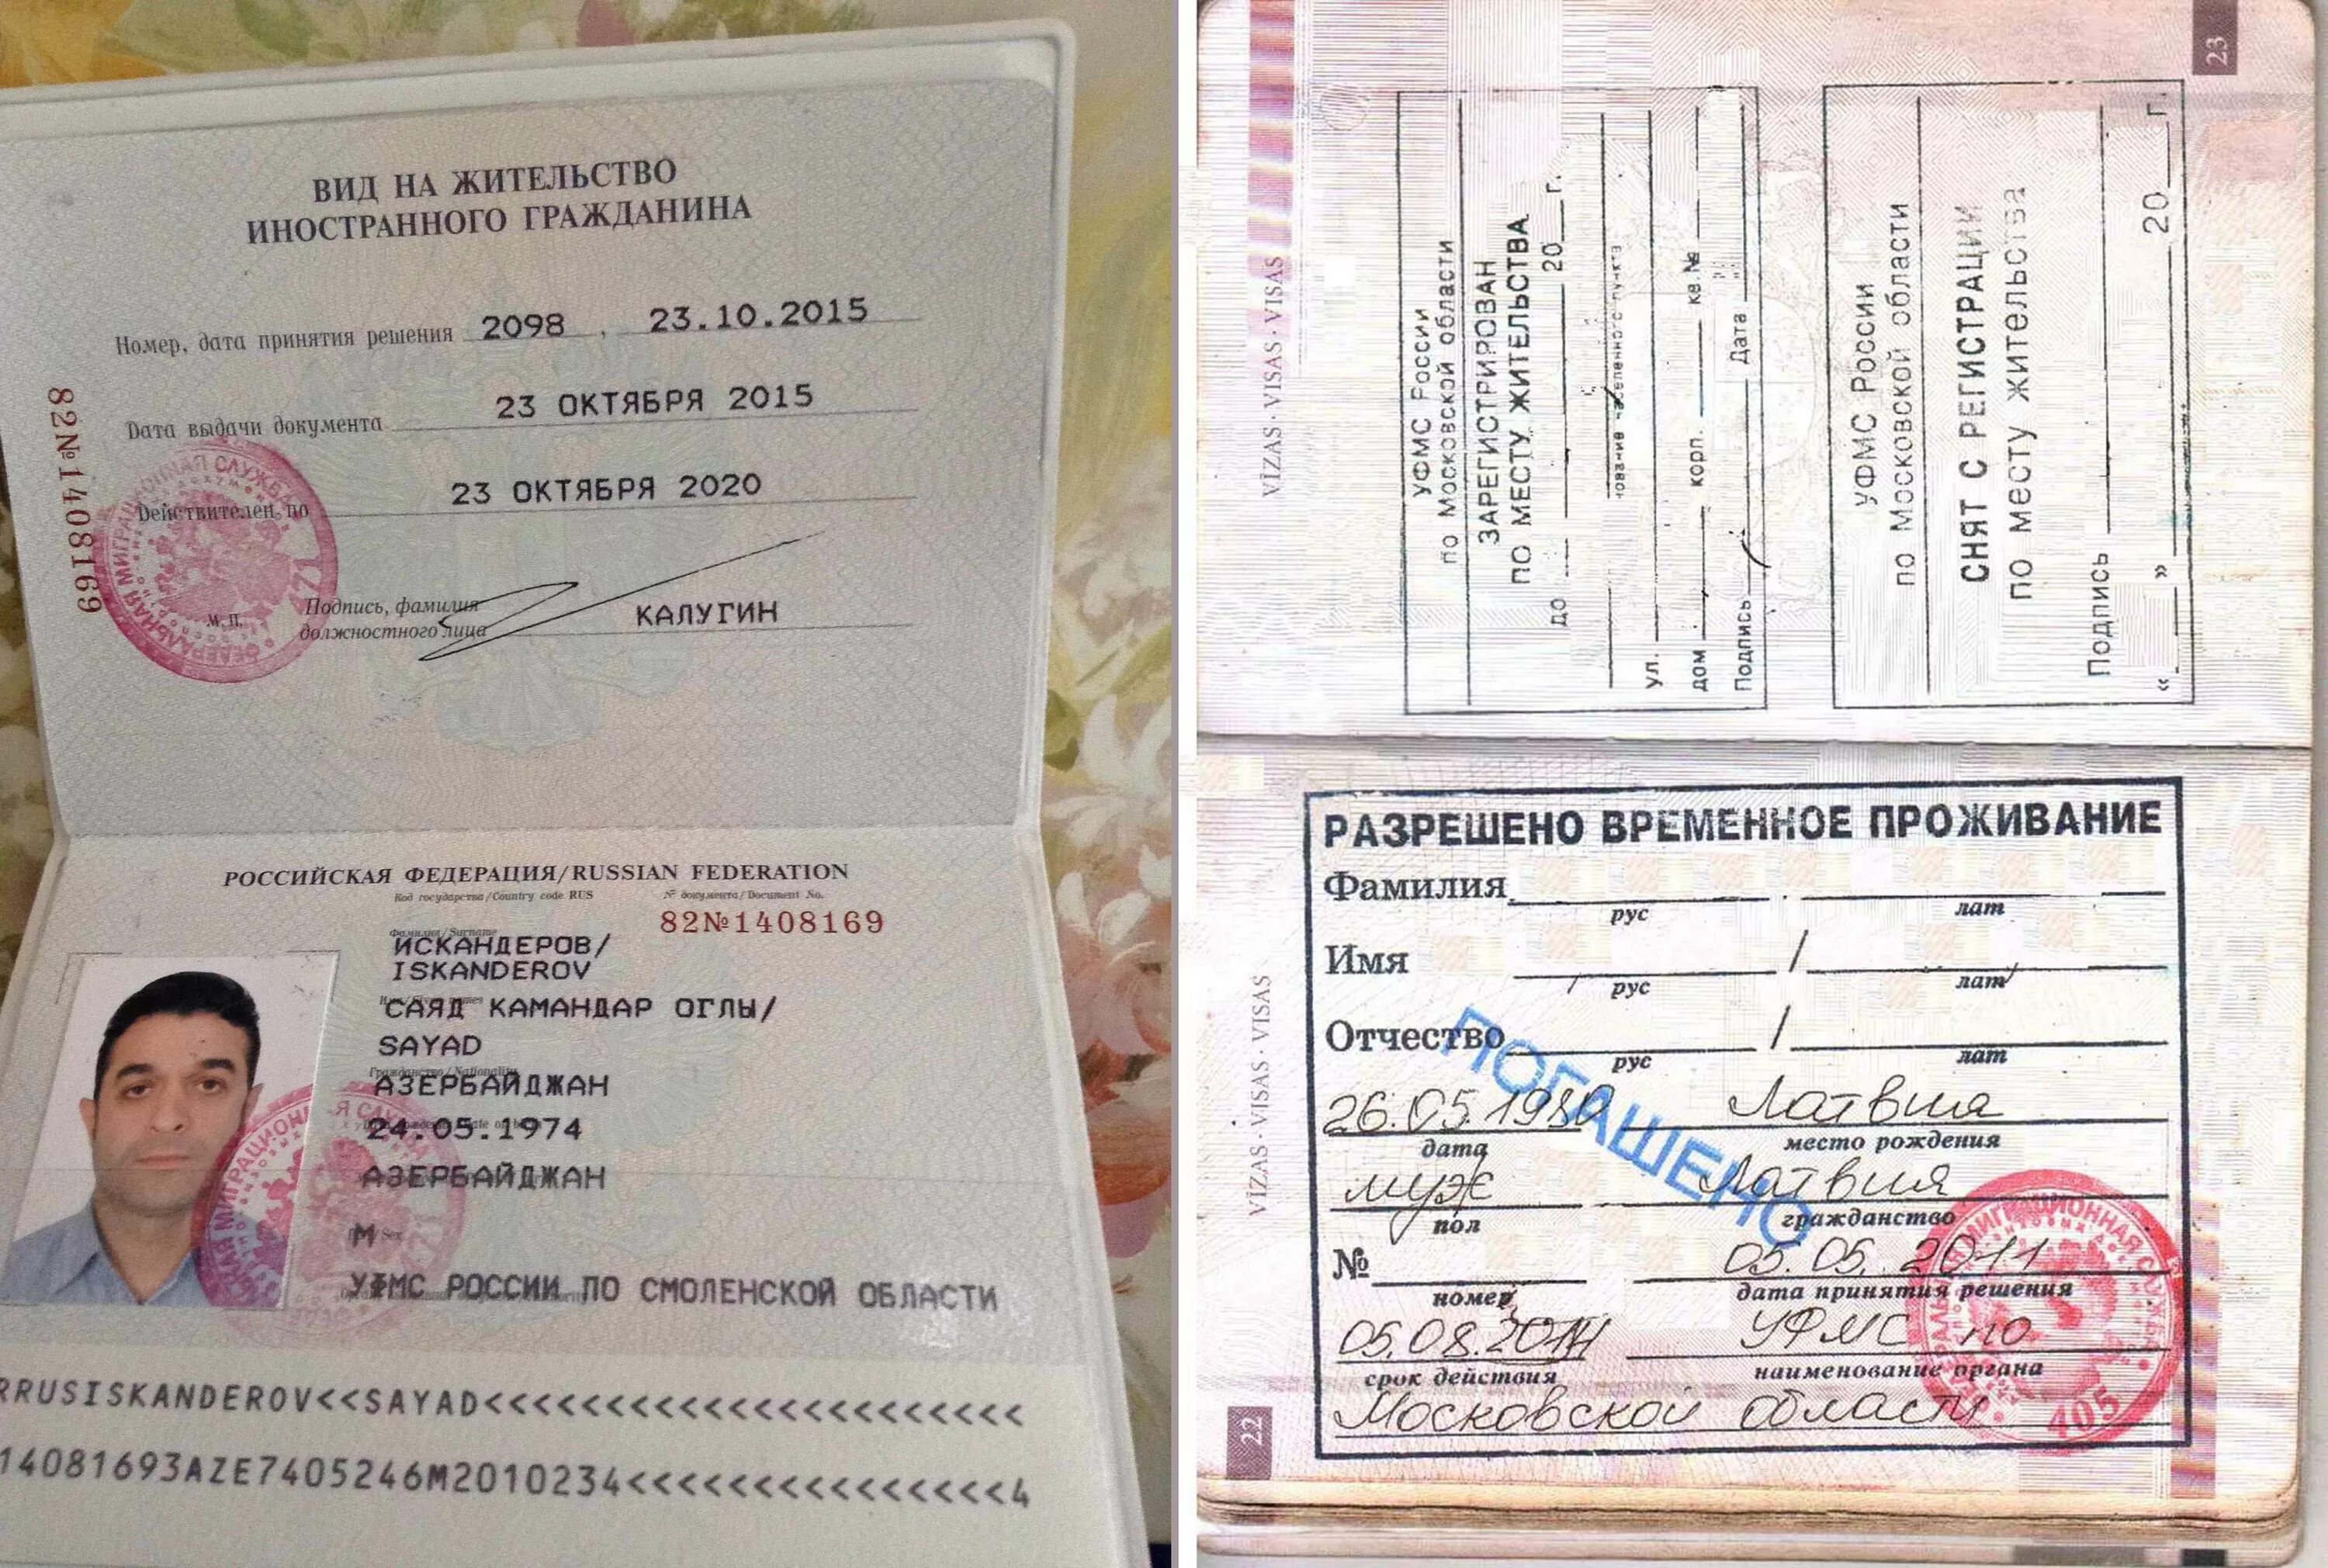 ВИД НА ЖИТЕЛЬСТВО
ИНОСТРАННОГО ГРАЖДАНИНА
Номер, дата принятия решения 2098 , 23.10.2015
Дата выдачи документа 23 ОКТЯБРЯ 2015
Действителен по 23 ОКТЯБРЯ 2020
М.П.
Подпись, фамилия
должностного лица КАЛУГИН
82№1408169
РОССИЙСКАЯ ФЕДЕРАЦИЯ/RUSSIAN FEDERATION
Код государства/Country code RUS № документа/Document No.
82№1408169
Фамилия/Surname
ИСКАНДЕРОВ/
ISKANDEROV
САЯД КАМАНДАР ОГЛЫ/
SAYAD
Гражданство/Nationality
АЗЕРБАЙДЖАН
24.05.1974
АЗЕРБАЙДЖАН
М
УФМС РОССИИ ПО СМОЛЕНСКОЙ ОБЛАСТИ
RRUSISKANDEROV<<SAYAD<<<<<<<<<<<<<<<<<<<<<<<
14081693AZE7405246M2010234<<<<<<<<<<<<<<<<4
ФЕДЕРАЛЬНАЯ МИГРАЦИОННАЯ СЛУЖБА
23
VĪZAS · VISAS · VISAS
УФМС России
по Московской области
ЗАРЕГИСТРИРОВАН
ПО МЕСТУ ЖИТЕЛЬСТВА
до 20 г.
населенного пункта
ул.
дом корп. кв.№
Подпись Дата
УФМС России
по Московской области
СНЯТ С РЕГИСТРАЦИИ
по месту жительства
Подпись
« » 20 г.
РАЗРЕШЕНО ВРЕМЕННОЕ ПРОЖИВАНИЕ
Фамилия
рус лат
Имя /
рус лат
Отчество /
рус лат
ПОГАШЕНО
26.05.1980 Латвия
дата место рождения
муж Латвия
пол гражданство
№ 05.05.2011
номер дата принятия решения
05.08.2014 УФМС по
срок действия наименование органа
Московской области
405
VĪZAS · VISAS · VISAS
22